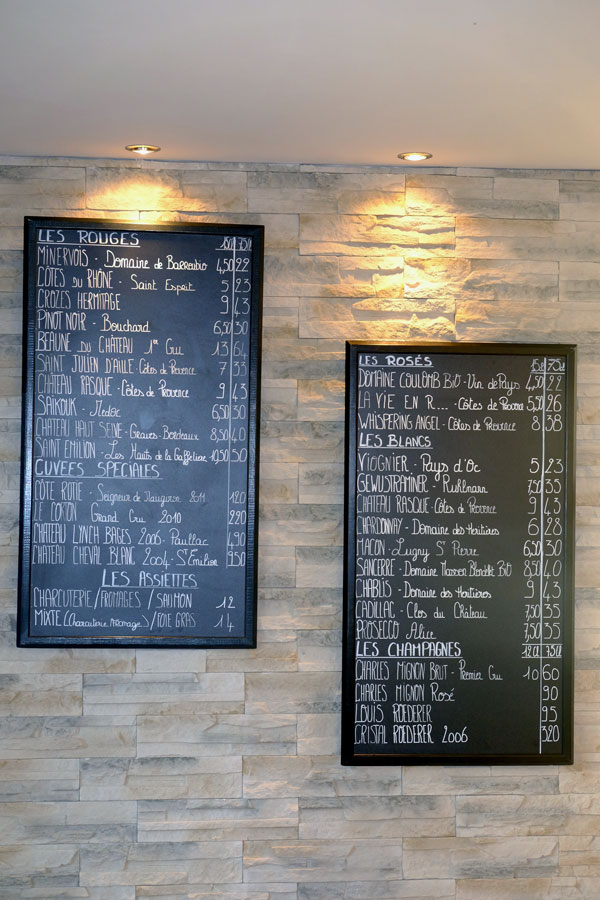 LES ROUGES 15cl 75cl
MINERVOIS - Domaine de Barroubio 4,50 22
CÔTES DU RHÔNE - Saint Esprit 5 23
CROZES HERMITAGE 9 43
PINOT NOIR - Bouchard 6,50 30
BEAUNE DU CHÂTEAU 1er Cru 13 64
SAINT JULIEN D'AILLE - Côtes de Provence 7 33
CHÂTEAU RASQUE - Côtes de Provence 9 43
Médoc 6,50 30
CHATEAU HAUT SELVE - Graves - Bordeaux 8,50 40
SAINT EMILION - Les Hauts de la Gaffelière 10,50 50
CUVEES SPECIALES
CÔTE ROTIE - Seigneur de Maugiron 2011 120
LE Grand Cru 2010 220
CHÂTEAU LYNCH BAGES 2006 - Pauillac 490
CHÂTEAU CHEVAL BLANC 2004 - St Emilion 950
LES ASSIETTES
CHARCUTERIE / FROMAGES / SAUMON 12
MIXTE (Charcuterie fromages) / FOIE GRAS 14
LES ROSÉS 15cl 75cl
DOMAINE COULOMB BIO - Vin de Pays 4,50 22
LA VIE EN R.... - Côtes de Provence 5,50 26
WHISPERING ANGEL - Côtes de Provence 8 38
LES BLANCS
VIOGNIER - Pays d'Oc 5 23
GEWUSTRAMINER - Ruhlmann 7,50 35
CHATEAU RASQUE - Côtes de Provence 9 43
CHARDONNAY - Domaine des Heritières 6 28
MACON - Lugny St Pierre 6,50 30
SANCERRE - Domaine Blondelet BIO 8,50 40
CHABLIS - Domaine des Heritières 9 43
CADILLAC - Clos du Château 7,50 35
PROSECCO 7,50 35
LES CHAMPAGNES 12cl 75cl
CHARLES MIGNON BRUT - Premier Cru 10 60
CHARLES MIGNON Rosé 90
LOUIS ROEDERER 95
CRISTAL ROEDERER 2006 320